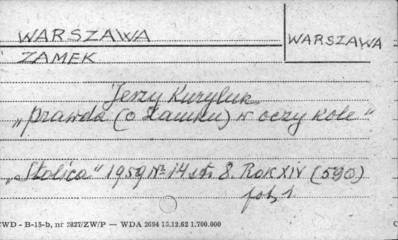 WARSZAWA
WARSZAWA
ZAMEK
Jerzy Kuryluk
„Prawda (o Zamku) w oczy kole"
„Stolica" 1959 Nr 14 str. 8. Rok XIV (590)
fot. 1.
CWD - B-15-b, nr 2827/ZW/P — WDA 2694 15.12.62 1.700.000